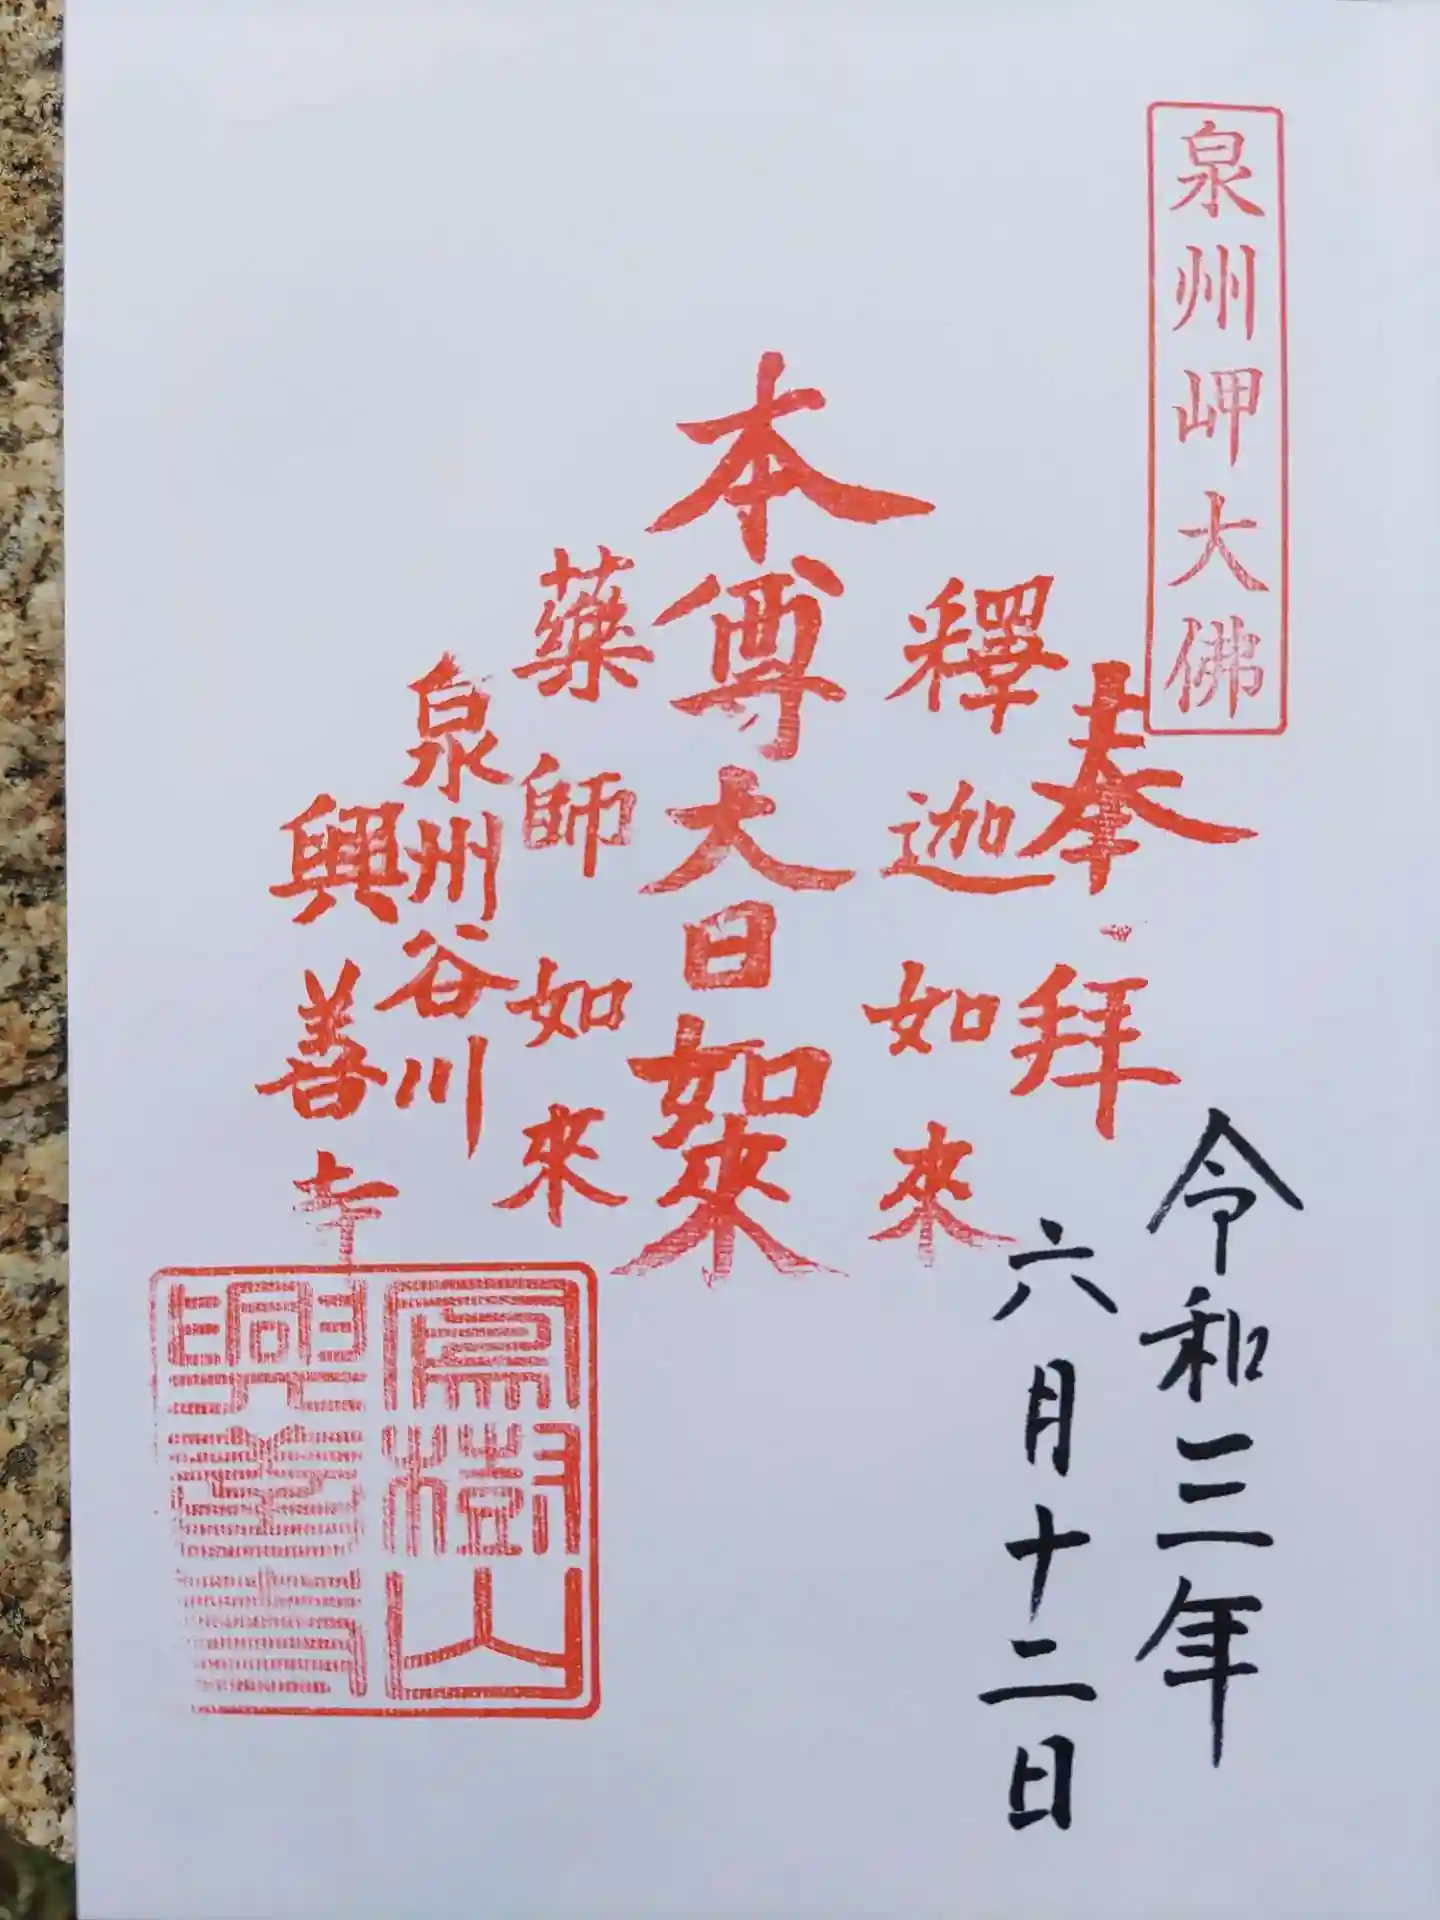 泉州岬大佛
奉拜
釋迦如來
本尊大日如來
藥師如來
泉州谷川
興善寺
令和三年
六月十二日
寶樹山
興善寺